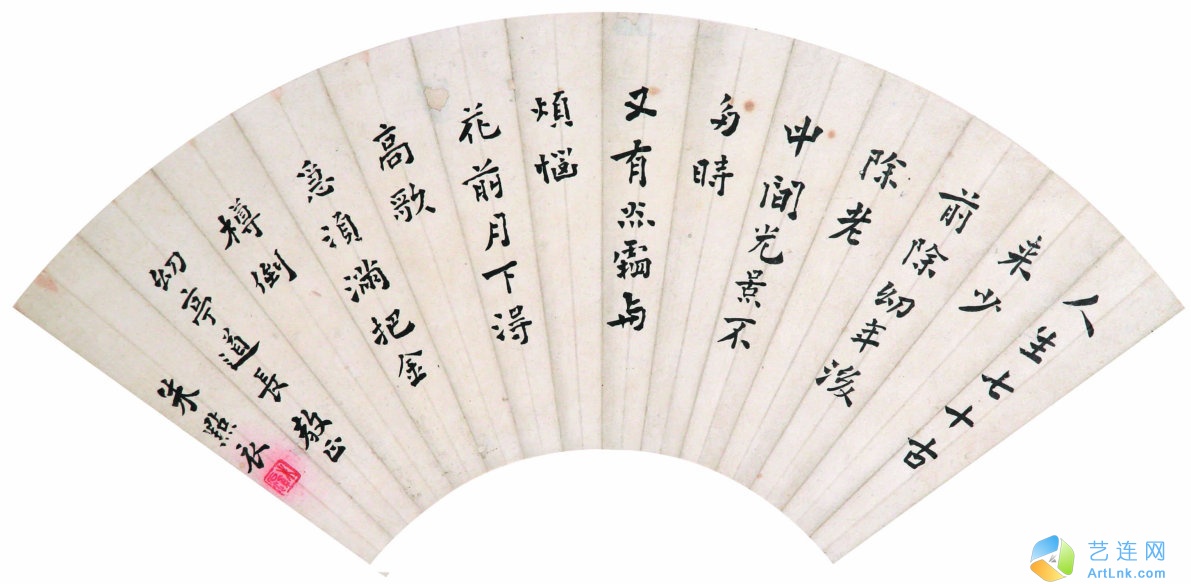 人生七十古
来少
前除幼年後
除老
中間光景不
多時
又有炎霜与
煩惱
花前月下得
高歌
急須滿把金
樽倒
幼亭道長教正
朱點衣
艺连网
ArtLnk.com